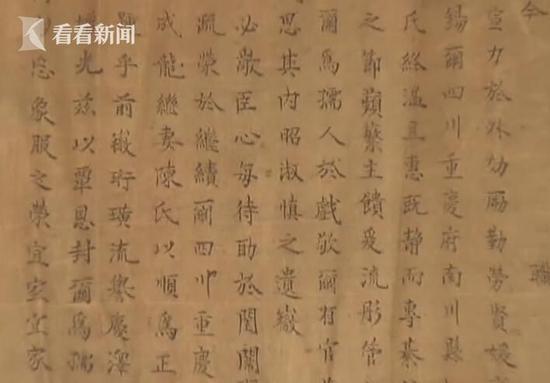 看看新闻
今
職
宣力於外劬勵勤勞賢媛
錫爾四川重慶府南川縣
氏終溫且惠既靜而專綦
之節蘋蘩主饋爰流彤管
爾爲孺人於戲敬爾有官
思其內昭淑慎之遺徽
必敬臣心每待助於閨闈
疏榮於繼續爾四川重慶
成龍繼妻陳氏以順爲正
乎前徽珩璜流譽慶澤
光茲以覃恩封爾爲孺
象服之榮宜室宜家